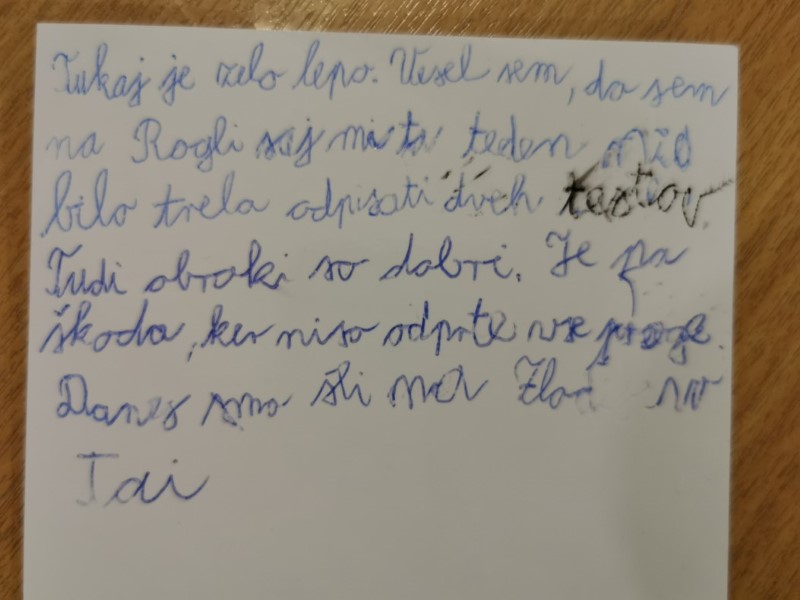 Tukaj je zelo lepo. Vesel sem, da sem
na Rogli saj mi ta teden ni
bilo treba odpisati dveh testov.
Tudi obroki so dobri. Je pa
škoda, ker niso odprte vse proge.
Danes smo šli na
Tai